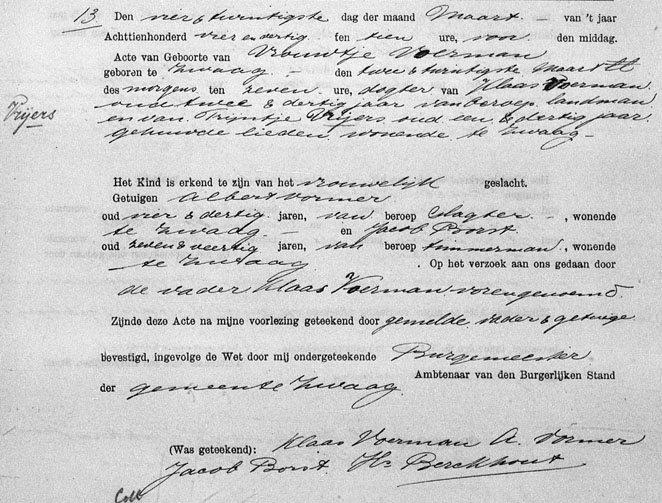 13. Den vier & twintigste dag der maand Maart – van 't jaar
Achttienhonderd vier en dertig fen tien ure, voor den middag.
Acte van Geboorte van Vrouwtje Voerman
geboren te Zwaag – den twee & twintigste Maart ll
des morgens ten zeven ure, dogter van Klaas Voerman
oud twee & dertig jaar van beroep landman
Vrijers
en van Trijntje Vrijers oud een & dertig jaar
gehuwde lieden wonende te Zwaag –
Het Kind is erkend te zijn van het vrouwelijk geslacht.
Getuigen Albert Vormer
oud vier & dertig jaren, van beroep slagter –, wonende
te Zwaag – en Jacob Borst
oud zeven & veertig jaren, van beroep timmerman, wonende
te Zwaag . Op het verzoek aan ons gedaan door
de vader Klaas Voerman vorengenoemd
Zijnde deze Acte na mijne voorlezing geteekend door gemelde vader & getuige
bevestigd, ingevolge de Wet door mij ondergeteekende Burgemeester
Ambtenaar van den Burgerlijken Stand
der gemeente Zwaag.
(Was geteekend): Klaas Voerman A. Vormer
Jacob Borst Hr Berckhout